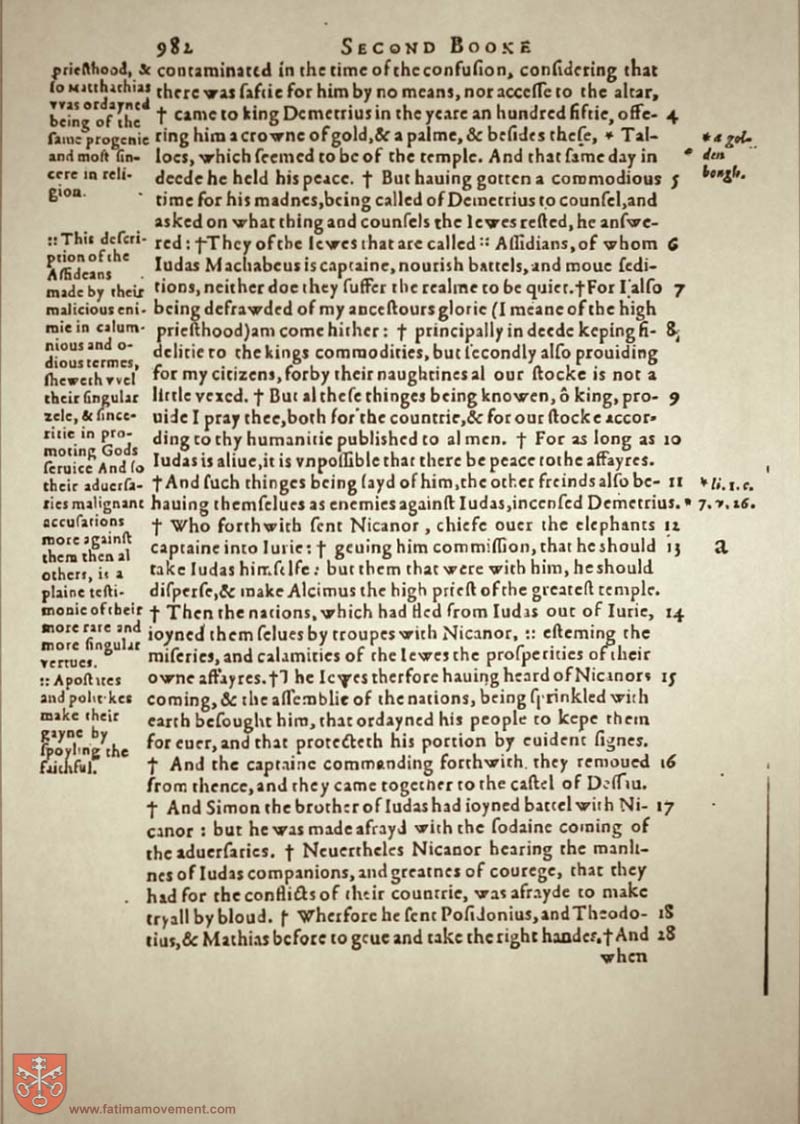 982 SECOND BOOKE
prieſthood, &
ſo Matthathias
vvas ordayned
being of the
ſame progenie
and moſt ſin-
cere in reli-
gion.
:: This deſcri-
ption of the
Aſſideans
made by their
malicious eni-
mie in calum-
nious and o-
dious termes,
ſheweth vvel
their ſingular
zele, & ſince-
ritie in pro-
moting Gods
ſeruice And ſo
their aduerſa-
ries malignant
accuſations
more againſt
them then al
others, is a
plaine teſti-
monie of their
more rare and
more ſingular
vertues.
:: Apoſtates
and politikes
make their
gayne by
ſpoyling the
faithful.
contaminated in the time of the confuſion, conſidering that
there was ſaftie for him by no means, nor acceſſe to the altar,
† came to king Demetrius in the yeare an hundred fiftie, offe- 4
ring him a crowne of gold, & a palme, & beſides theſe, * Tal-
loes, which ſeemed to be of the temple. And that ſame day in
deede he held his peace. † But hauing gotten a commodious 5
time for his madnes, being called of Demetrius to counſel, and
asked on what thing and counſels the Iewes reſted, he anſwe-
red: † They of the Iewes that are called :: Aſſidians, of whom 6
Iudas Machabeus is captaine, nouriſh battels, and moue ſedi-
tions, neither doe they ſuffer the realme to be quiet. † For I alſo 7
being defrawded of my anceſtours glorie (I meane of the high
prieſthood) am come hither: † principally in deede keping fi- 8
delitie to the kings commodities, but ſecondly alſo prouiding
for my citizens, for by their naughtines al our ſtocke is not a
little vexed. † But al theſe thinges being knowen, ô king, pro- 9
uide I pray thee, both for the countrie, & for our ſtocke accor-
ding to thy humanitie publiſhed to al men. † For as long as 10
Iudas is aliue, it is vnpoſſible that there be peace to the affayres.
† And ſuch thinges being ſayd of him, the other freinds alſo be- 11
hauing themſelues as enemies againſt Iudas, incenſed Demetrius. *
† Who forthwith ſent Nicanor, chiefe ouer the elephants 12
captaine into Iurie: † geuing him commiſſion, that he ſhould 13
take Iudas himſelfe: but them that were with him, he ſhould
diſperſe, & make Alcimus the high prieſt of the greateſt temple.
† Then the nations, which had fled from Iudas out of Iurie, 14
ioyned them ſelues by troupes with Nicanor, :: eſteming the
miſeries, and calamities of the Iewes the proſperities of their
owne affayres. † The Iewes therfore hauing heard of Nicanors 15
coming, & the aſſemblie of the nations, being ſprinkled with
earth beſought him, that ordayned his people to kepe them
for euer, and that protecteth his portion by euident ſignes.
† And the captaine commanding forthwith they remoued 16
from thence, and they came together to the caſtel of Deſſau.
† And Simon the brother of Iudas had ioyned battel with Ni- 17
canor: but he was made afrayd with the ſodaine coming of
the aduerſaries. † Neuertheles Nicanor hearing the manli-
nes of Iudas companions, and greatnes of courege, that they
had for the conflicts of their countrie, was afrayde to make
tryall by bloud. † Wherfore he ſent Poſidonius, and Theodo- 18
tius, & Mathias before to geue and take the right handes. † And 28
when
* a gol-
den
bough.
* li. 1. c.
7. v. 26.
a
www.fatimamovement.com